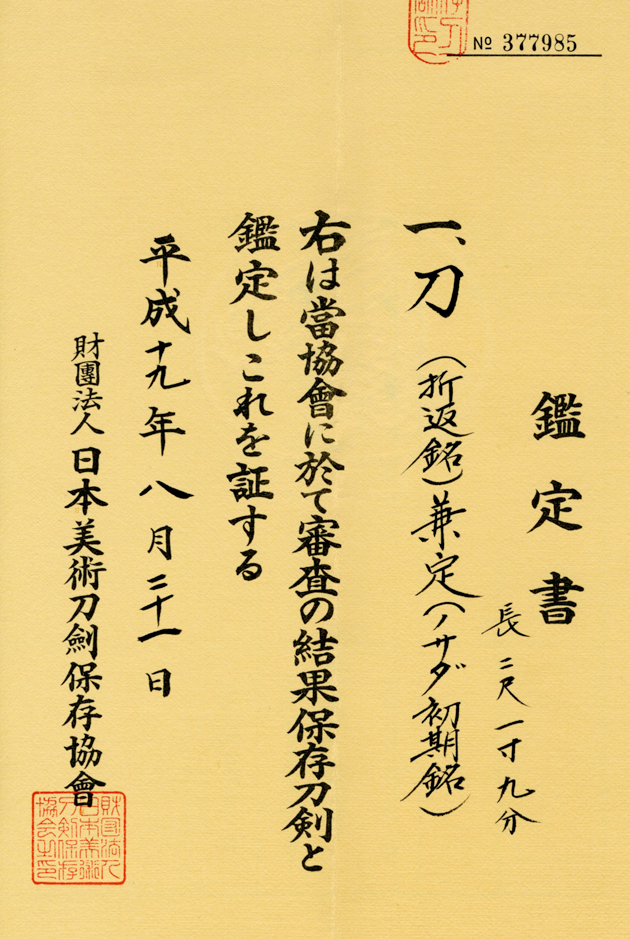 № 377985
鑑定書
長 二尺一寸九分
一、刀 (折返銘)兼定(ノサダ初期銘)
右は當協會に於て審査の結果保存刀剣と
鑑定しこれを証する
平成十九年八月二十一日
財團法人 日本美術刀劍保存協會
財団法人
日本美術
刀剣保存
協会之印